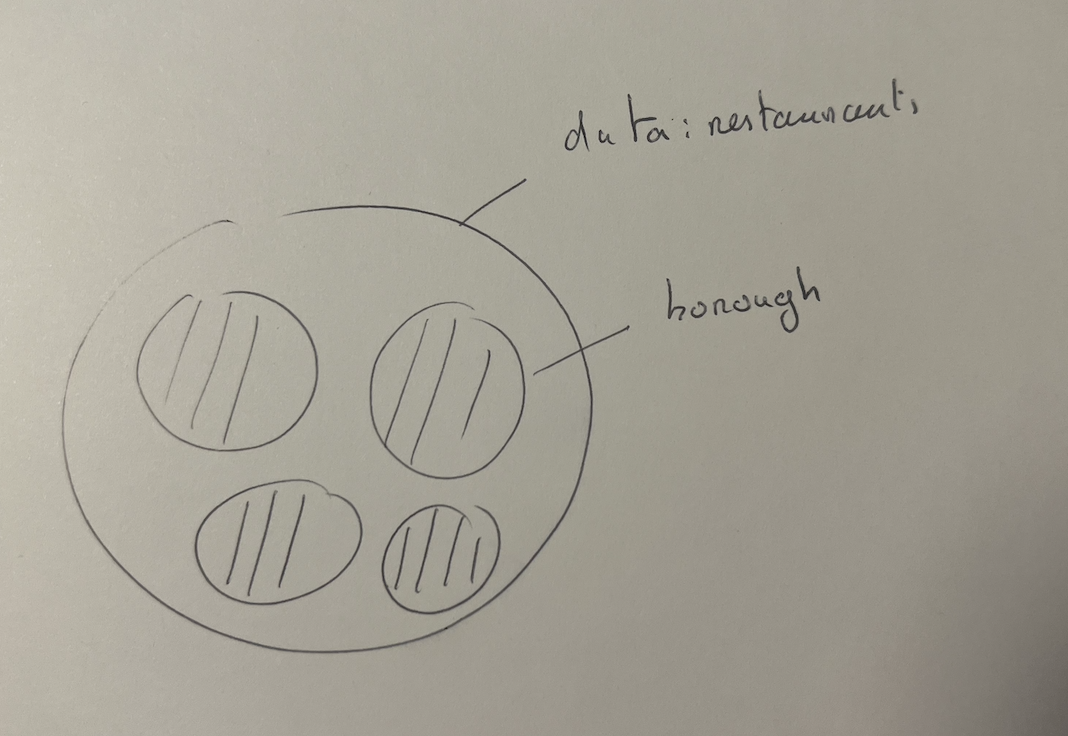 data: restaurants
borough